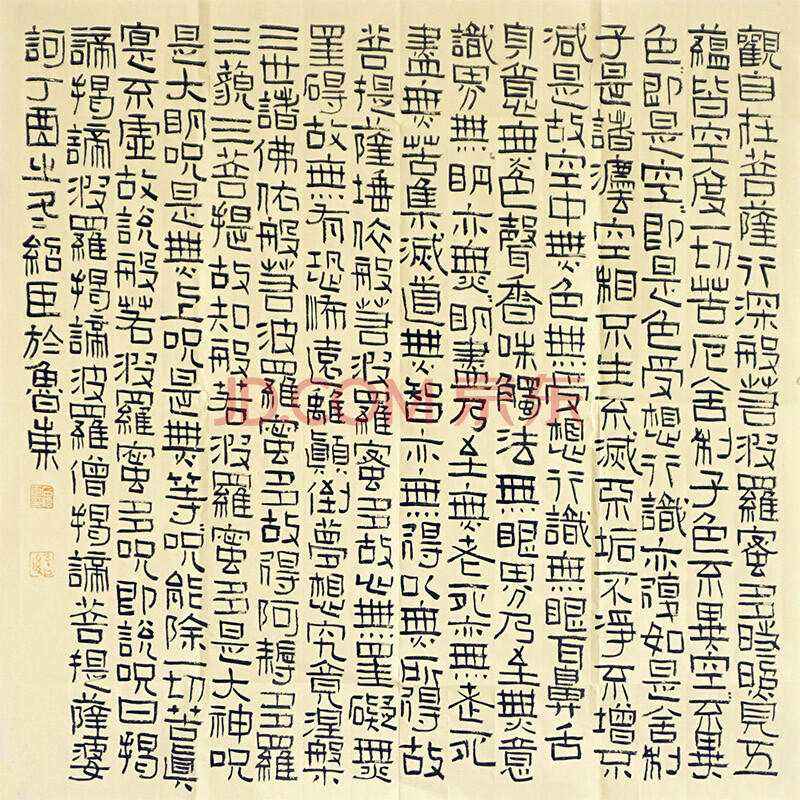 觀自在菩薩行深般若波羅蜜多時照見五
蘊皆空度一切苦厄舍利子色不異空不異
色即是空即是色受想行識亦復如是舍利
子是諸灋空相不生不滅不垢不淨不增不
減是故空中無色無受想行識無眼耳鼻舌
身意無色聲香味觸法無眼界乃至無意
識界無明亦無明盡乃至無老死亦無老死
盡無苦集滅道無智亦無得以無所得故
菩提薩埵依般若波羅蜜多故心無罣礙無
罣碍故無有恐怖遠離顛倒夢想究竟涅槃
三世諸佛依般若波羅蜜多故得阿耨多羅
三藐三菩提故知般若波羅蜜多是大神呪
是大明呪是無上呪是無等呪能除一切苦真
寔不虛故說般若波羅蜜多呪即說呪曰揭
諦揭諦波羅揭諦波羅僧揭諦菩提薩婆
訶丁酉之冬紹臣於魯東
JD.COM 京东